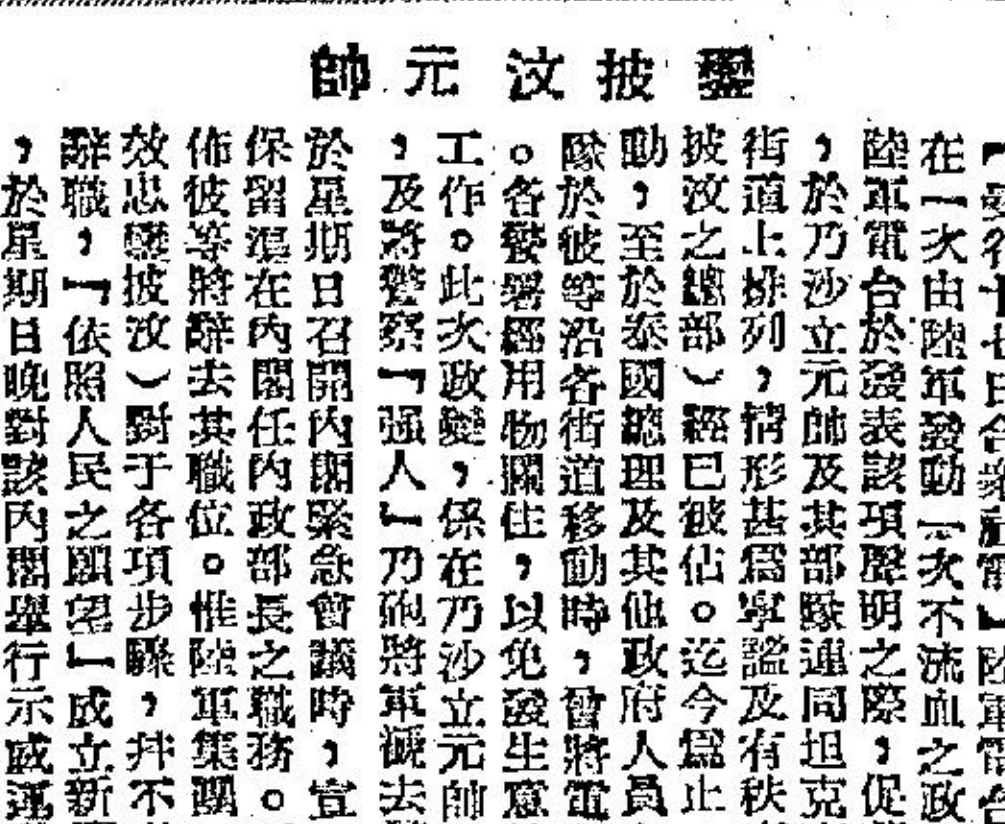 鑾披汶元帥
『曼谷十七日合衆社電』陸軍電台
在一次由陸軍發動一次不流血之政
陸軍電台於發表該項聲明之際，促
，於乃沙立元帥及其部隊連同坦克
街道上排列，情形甚爲寧謐及有秩
披汶之總部）經已被佔。迄今爲止
動，至於泰國總理及其他政府人員
隊於彼等沿各街道移動時，曾將電
。各警署經用物攔住，以免發生意
工作。此次政變，係在乃沙立元帥
，及將警察『强人』乃砲將軍褫去
於星期日召開內閣緊急會議時，宣
保留渠在內閣任內政部長之職務。
佈彼等將辭去其職位。惟陸軍集團
效忠鑾披汶）對于各項步驟，幷不
辭職，『依照人民之願望』成立新
，於星期日晚對該內閣舉行示威運